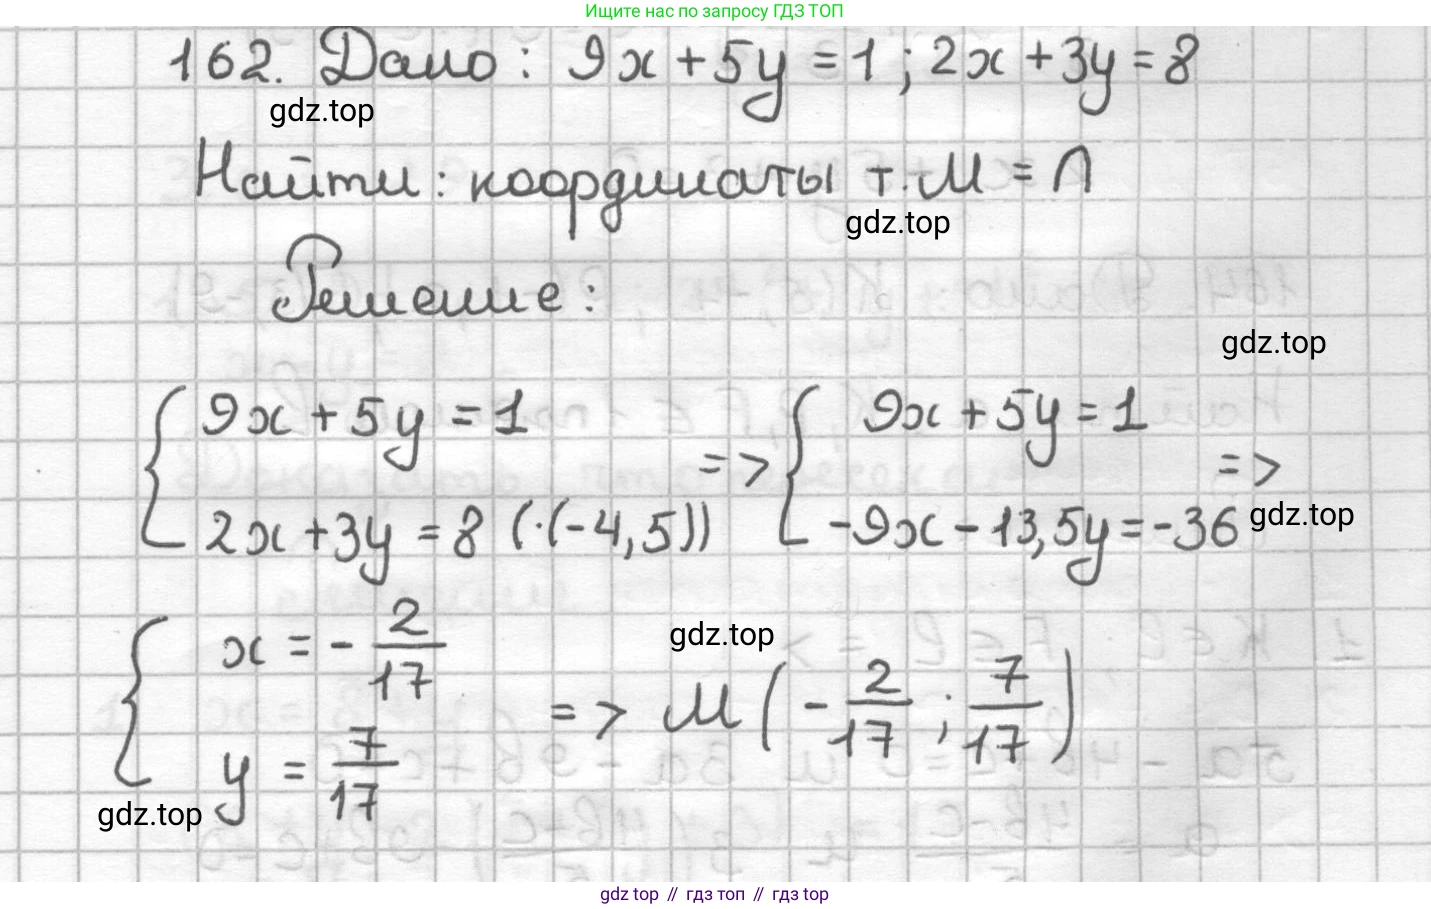 Ищите нас по запросу ГДЗ ТОП
162. Дано: 9x + 5y = 1; 2x + 3y = 8
gdz.top
Найти: координаты т. M = ∩
gdz.top
Решение:
gdz.top
{ 9x + 5y = 1 => { 9x + 5y = 1 =>
2x + 3y = 8 (·(-4,5)) -9x - 13,5y = -36
gdz.top
gdz.top
{ x = - 2/17
y = 7/17 => M (- 2/17 ; 7/17)
gdz.top
gdz top // гдз топ // гдз top